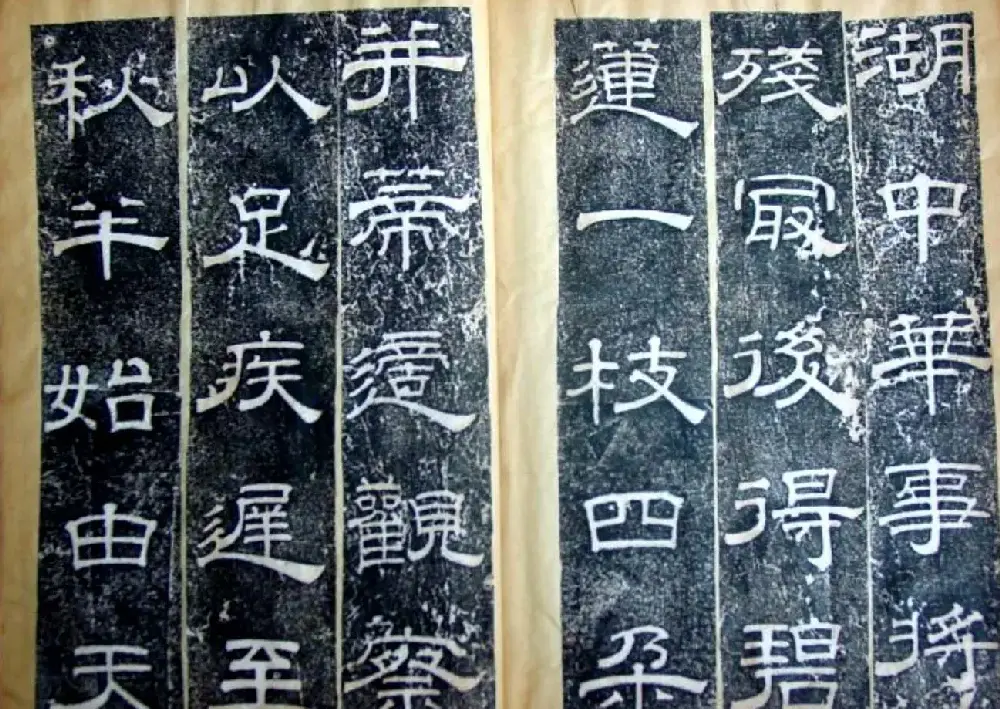 湖中華事將
殘冣後得碧
蓮一枝四朶
并蒂適觀察
以足疾遲至
秋半始由天